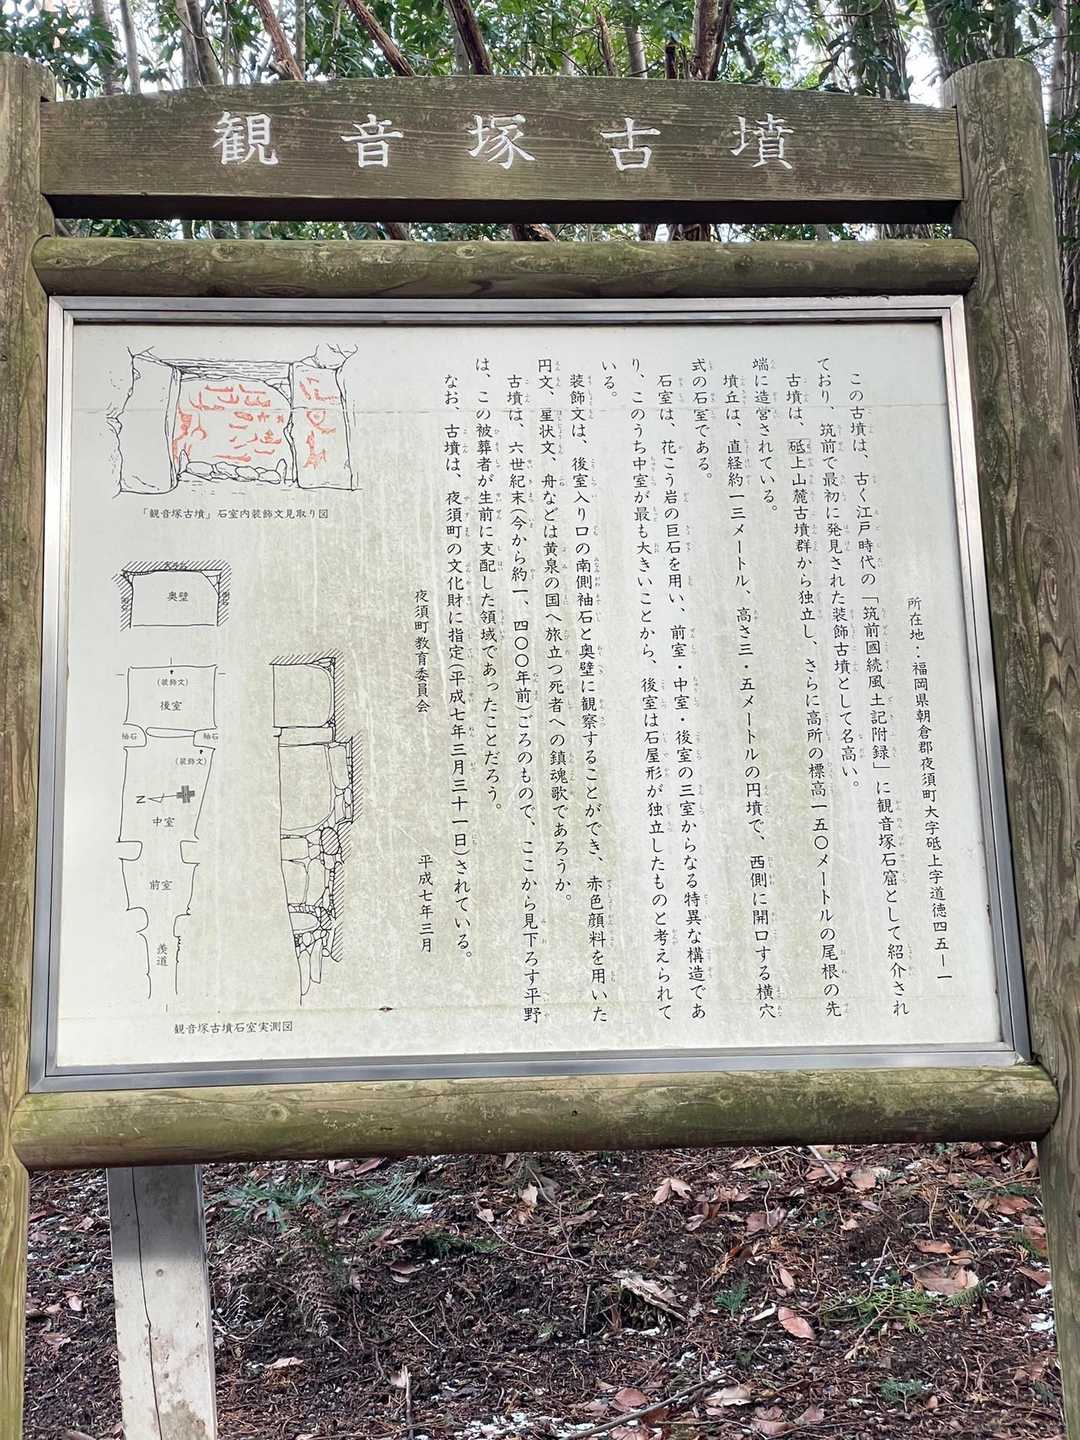 観音塚古墳
所在地‥福岡県朝倉郡夜須町大字砥上字道徳四五ー一
この古墳は、古く江戸時代の「筑前國続風土記附録」に観音塚石窟として紹介され
ており、筑前で最初に発見された装飾古墳として名高い。
古墳は、砥上山麓古墳群から独立し、さらに高所の標高一五〇メートルの尾根の先
端に造営されている。
墳丘は、直経約一三メートル、高さ三・五メートルの円墳で、西側に開口する横穴
式の石室である。
石室は、花こう岩の巨石を用い、前室・中室・後室の三室からなる特異な構造であ
り、このうち中室が最も大きいことから、後室は石屋形が独立したものと考えられて
いる。
装飾文は、後室入り口の南側袖石と奥壁に観察することができ、赤色顔料を用いた
円文、星状文、舟などは黄泉の国へ旅立つ死者への鎮魂歌であろうか。
古墳は、六世紀末(今から約一、四〇〇年前)ごろのもので、ここから見下ろす平野
は、この被葬者が生前に支配した領域であったことだろう。
なお、古墳は、夜須町の文化財に指定(平成七年三月三十一日)されている。
平成七年三月
夜須町教育委員会
「観音塚古墳」石室内装飾文見取り図
奥壁
(装飾文)
後室
袖石
袖石
(装飾文)
N
中室
前室
羨道
観音塚古墳石室実測図